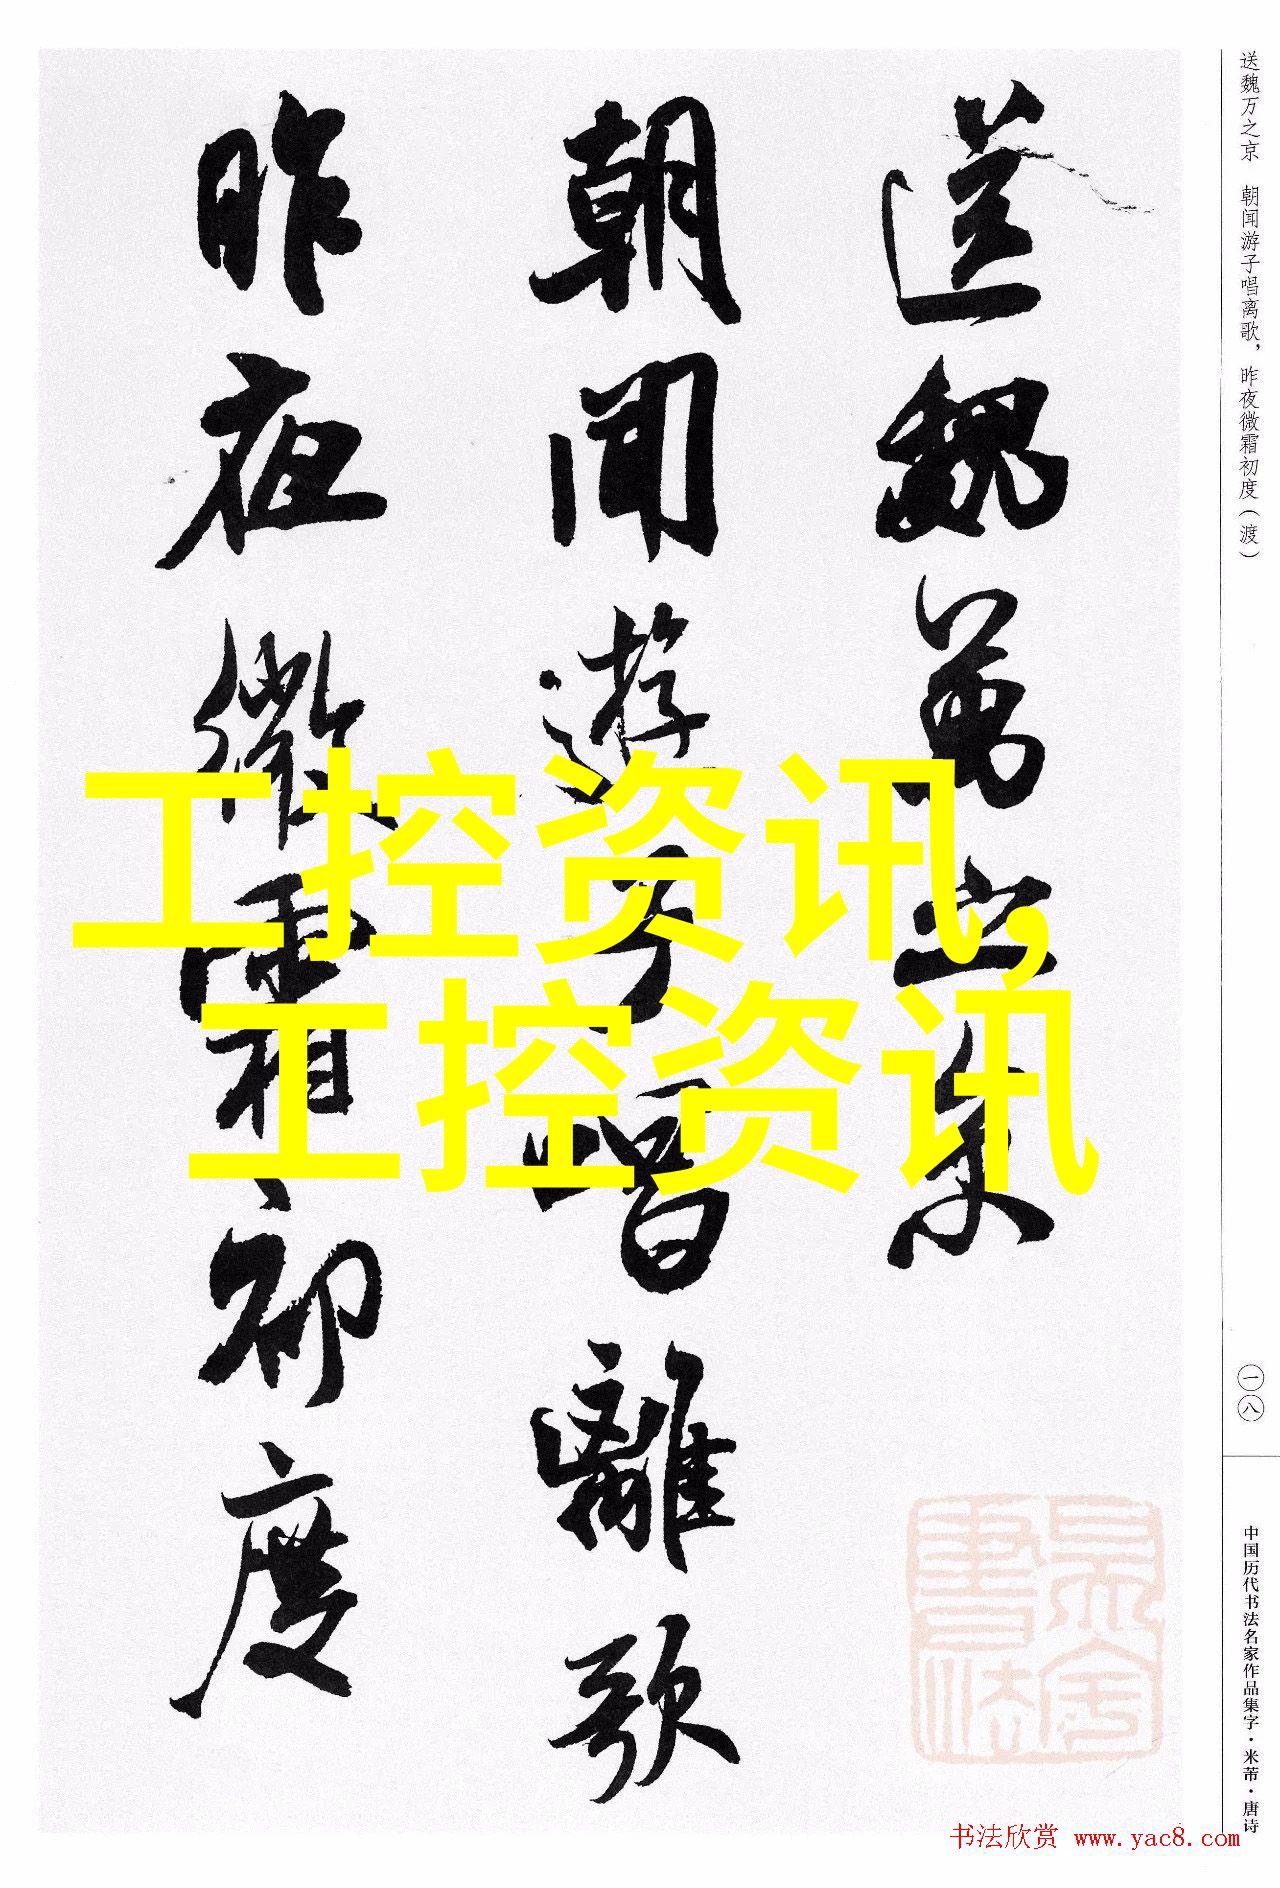 送魏万之京　朝闻游子唱离歌，昨夜微霜初度（渡）
送魏萬之京
朝聞遊子唱離歌
昨夜微霜初度
工控资讯,
工控资讯
一八
中国历代书法名家作品集字·米芾·唐诗
书法欣赏 www.yac8.com